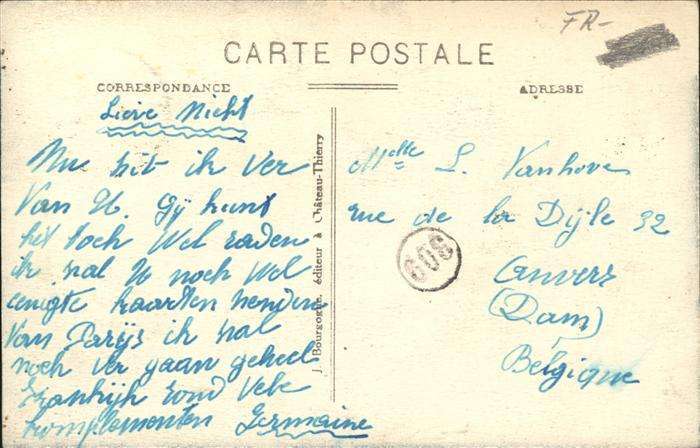 FR-
CARTE POSTALE
CORRESPONDANCE
Lieve Nicht
Nu zit ik ver
van U. Gÿ kunt
het toch wel raden
ik zal U noch wel
eenigte kaarten zenden
van Parÿs ik zal
noch ver gaan geheel
Frankrÿk rond Vele
komplementen Germaine
J. Bourgogne, éditeur à Château-Thierry
ADRESSE
Melle L. Vanhove
rue de la Dÿle 32
Anvers
(Dam)
Belgique